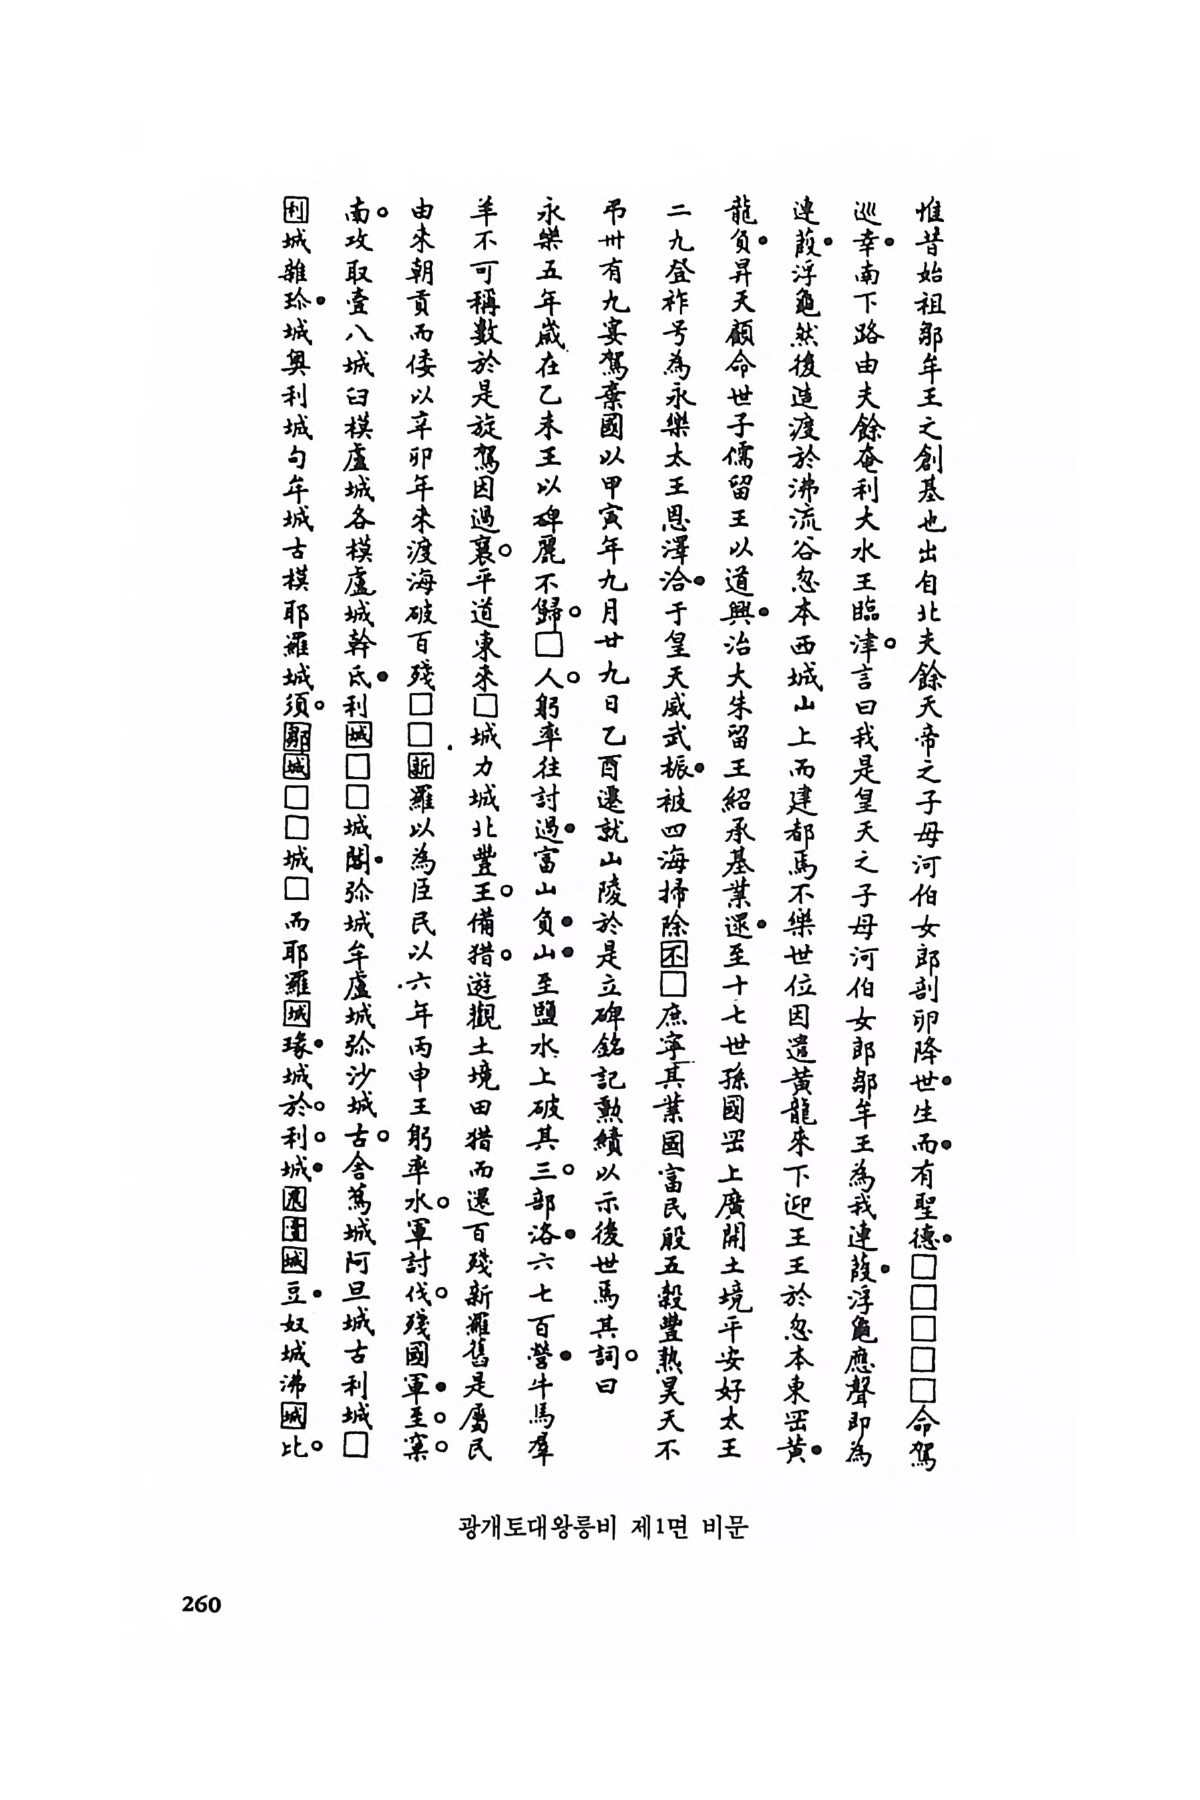 惟昔始祖鄒牟王之創基也出自北夫餘天帝之子母河伯女郎剖卵降世生而有聖德□□□□□命駕
巡幸南下路由夫餘奄利大水王臨津言曰我是皇天之子母河伯女郎鄒牟王為我連葭浮龜應聲即為
連葭浮龜然後造渡於沸流谷忽本西城山上而建都焉不樂世位因遣黃龍來下迎王王於忽本東罡黃
龍負昇天顧命世子儒留王以道興治大朱留王紹承基業還至十七世孫國罡上廣開土境平安好太王
二九登祚号為永樂太王恩澤洽于皇天威武振被四海掃除不□庶寧其業國富民殷五穀豐熟昊天不
弔卅有九宴駕棄國以甲寅年九月廿九日乙酉遷就山陵於是立碑銘記勲績以示後世焉其詞曰
永樂五年歲在乙未王以碑麗不歸□人躬率往討過富山負山至鹽水上破其三部洛六七百營牛馬羣
羊不可稱數於是旋駕因過襄平道東來□城力城北豐王備猎遊觀土境田猎而還百殘新羅舊是屬民
由來朝貢而倭以辛卯年來渡海破百殘□□新羅以為臣民以六年丙申王躬率水軍討伐殘國軍至窠
南攻取壹八城臼模盧城各模盧城幹氐利城□□城閣弥城牟盧城弥沙城古舍蔦城阿旦城古利城□
利城雜珎城奥利城句牟城古模耶羅城須鄒城□□城□而耶羅城瑑城於利城□壹城豆奴城沸城比
광개토대왕릉비 제1면 비문
260